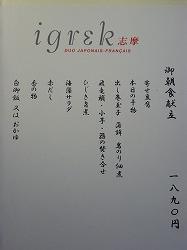 igrek 志摩
DUO JAPONAIS-FRANÇAIS
御朝食献立 一八九〇円
寄せ豆腐
本日の干物
出し巻玉子 蒲鉾 岩のり佃煮
飛竜頭・小芋・蕗の焚き合せ
ひじき旨煮
海藻サラダ
赤だし
香の物
白御飯 又は おかゆ